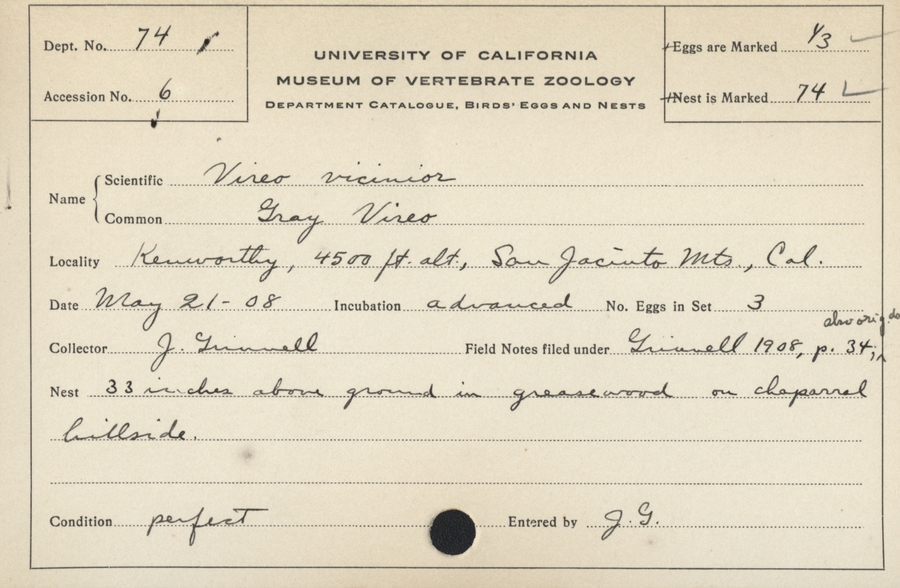 Dept. No. 74
UNIVERSITY OF CALIFORNIA
MUSEUM OF VERTEBRATE ZOOLOGY
DEPARTMENT CATALOGUE, BIRDS' EGGS AND NESTS
Eggs are Marked 1/3
Accession No. 6
Nest is Marked 74
Name
Scientific Vireo vicinior
Common Gray Vireo
Locality Kenworthy, 4500 ft. alt., San Jacinto Mts., Cal.
Date May 21-08 Incubation advanced No. Eggs in Set 3
also orig.
Collector J. Grinnell Field Notes filed under Grinnell 1908, p. 34;
Nest 33 inches above ground in greasewood on chaparral
hillside.
Condition perfect Entered by J. G.